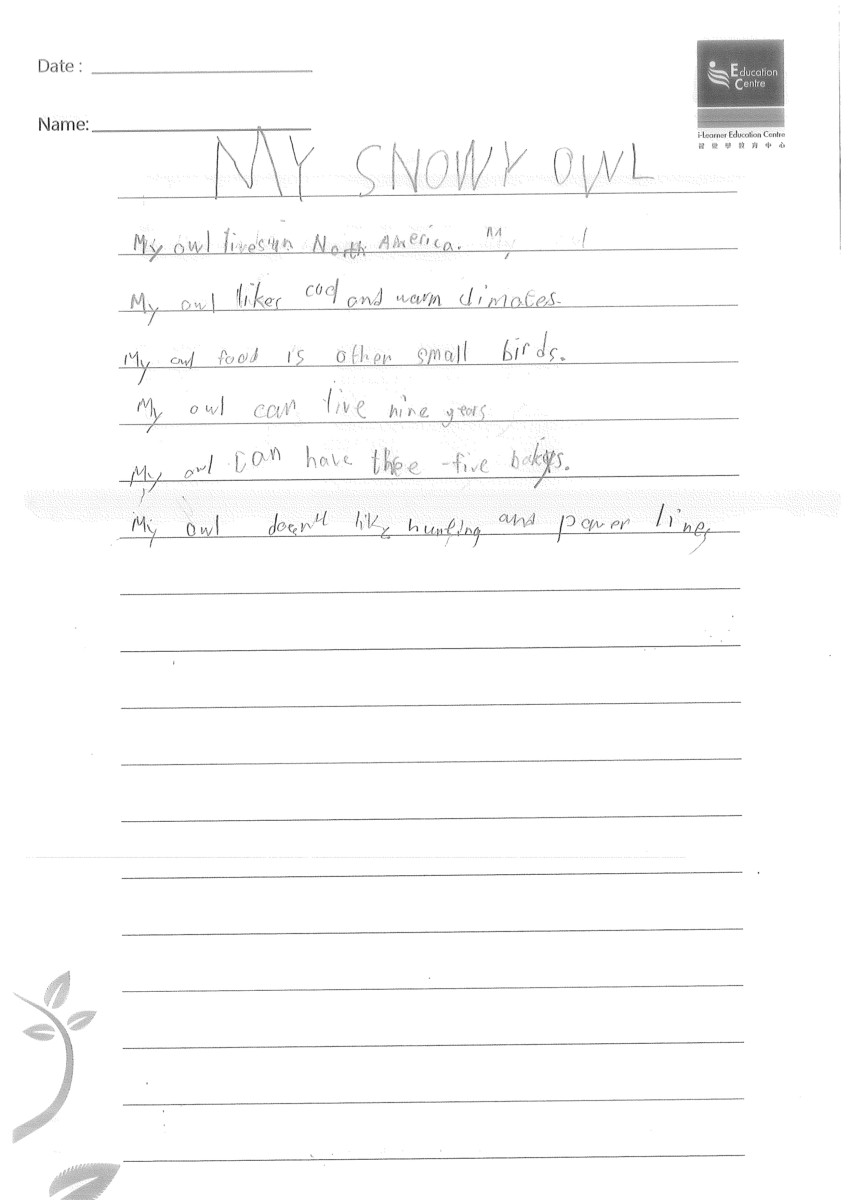 Date :
Education
Centre
Name:
i-Learner Education Centre
MY SNOWY OWL
My owl lives in North America. My
My owl likes cool and warm climates.
My owl food is other small birds.
My owl can live nine years
My owl can have thee -five babys.
My owl doesn't like hunting and power lines